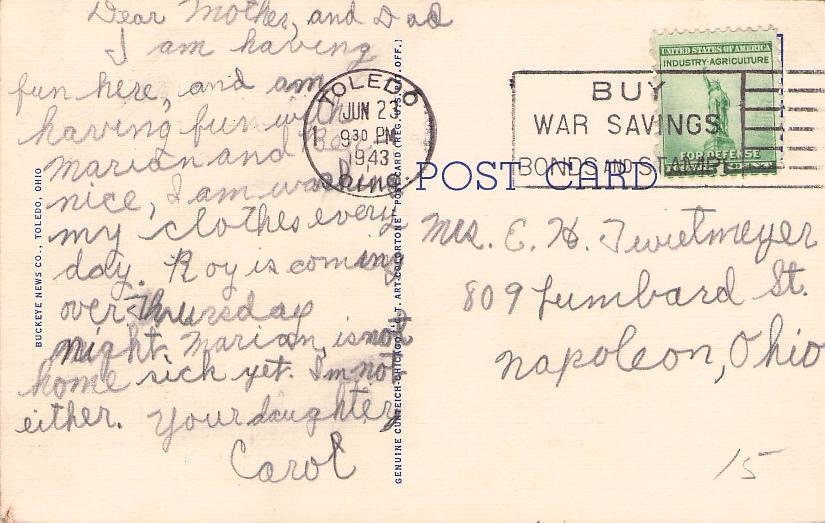 Dear Mother, and Dad
I am having
fun here, and am
having fun with
Marian and
nice, I am washing
my clothes every
day. Roy is coming
over Thursday
night. Marian, is not
home sick yet. I'm not
either. Your daughter
Carol
BUCKEYE NEWS CO., TOLEDO, OHIO
GENUINE CURTEICH-CHICAGO "C.T. ART-COLORTONE" POST CARD (REG. U.S. PAT. OFF.)
TOLEDO
JUN 23
9 30 PM
1943
OHIO
BUY
WAR SAVINGS
BONDS AND STAMPS
UNITED STATES OF AMERICA
INDUSTRY·AGRICULTURE
FOR DEFENSE
POST CARD
Mrs. E. H. Twietmeyer
809 Lumbard St.
Napoleon, Ohio
15